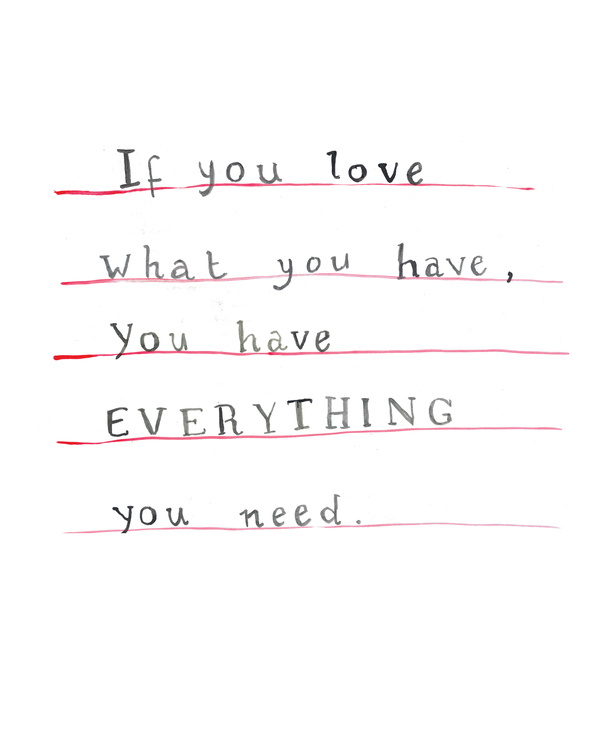 If you love
what you have,
you have
EVERYTHING
you need.